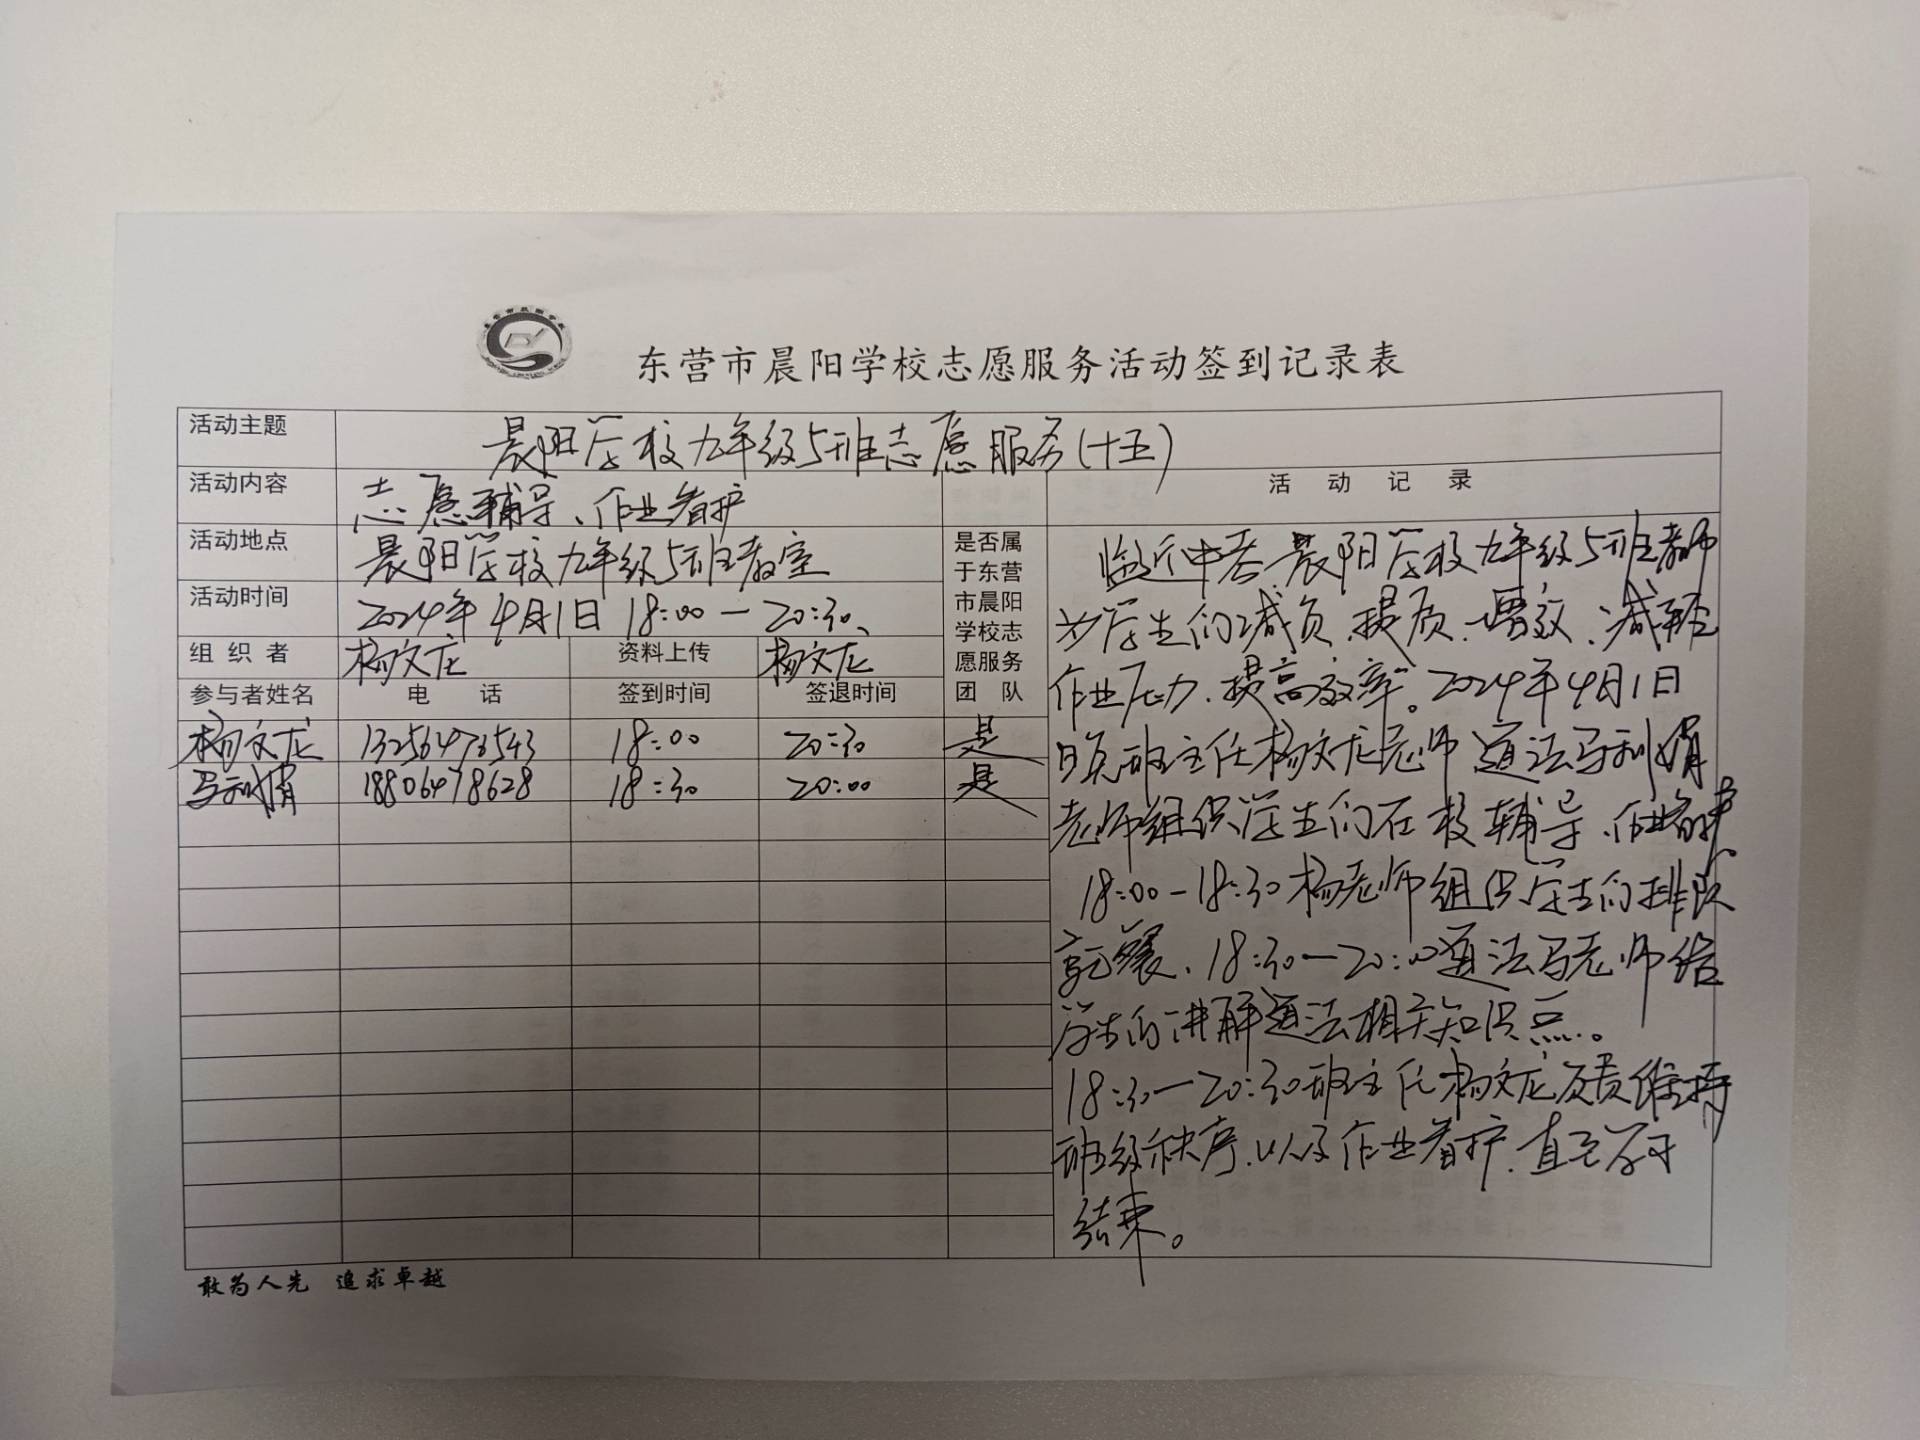 东营市晨阳学校志愿服务活动签到记录表
活动主题 晨阳学校九年级5班志愿服务(十五)
活动内容 志愿辅导、作业看护
活动记录
活动地点 晨阳学校九年级5班教室
活动时间 2024年4月1日 18:00—20:30、
组织者 杨文龙 资料上传 杨文龙
参与者姓名 电话 签到时间 签退时间
是否属
于东营
市晨阳
学校志
愿服务
团队
杨文龙 13256473543 18:00 20:30 是
马利娟 18806478628 18:30 20:00 是
临近中考 晨阳学校九年级5班教师
为学生们减负、提质、增效、减轻
作业压力、提高效率。2024年4月1日
班主任杨文龙老师 道法马利娟
老师组织学生们在校辅导、作业看护
18:00-18:30杨老师组织学生们排队
就餐、18:30—20:00道法马老师给
学生们讲解道法相关知识点。
18:30—20:30班主任杨文龙负责维持
班级秩序、以及作业看护、直至
结束。
敢为人先 追求卓越